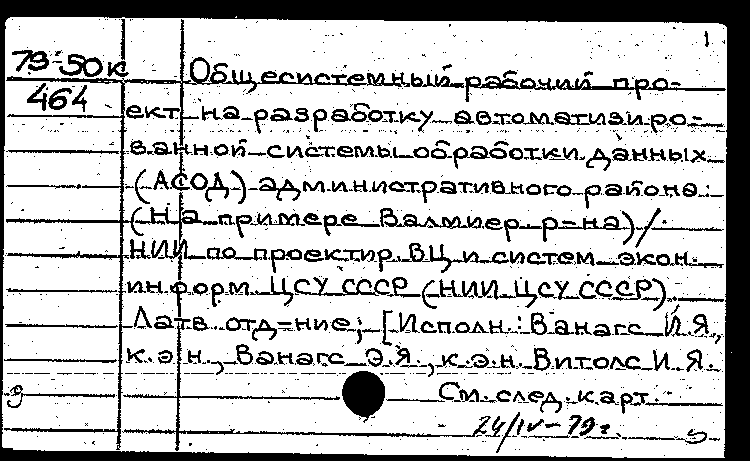 1
79-50к
464
Общесистемный рабочий про-
ект на разработку автоматизиро-
ванной системы обработки данных
(АСОД) административного района:
(На примере Валмиер. р-на) /
НИИ по проектир. ВЦ и систем экон.
информ. ЦСУ СССР (НИИ ЦСУ СССР).
Латв. отд-ние; [Исполн.: Ванагс Й.Я.,
к.э.н., Ванагс Э.Я., к.э.н. Витолс И.Я.
См. след. карт.
24/IV-79г.